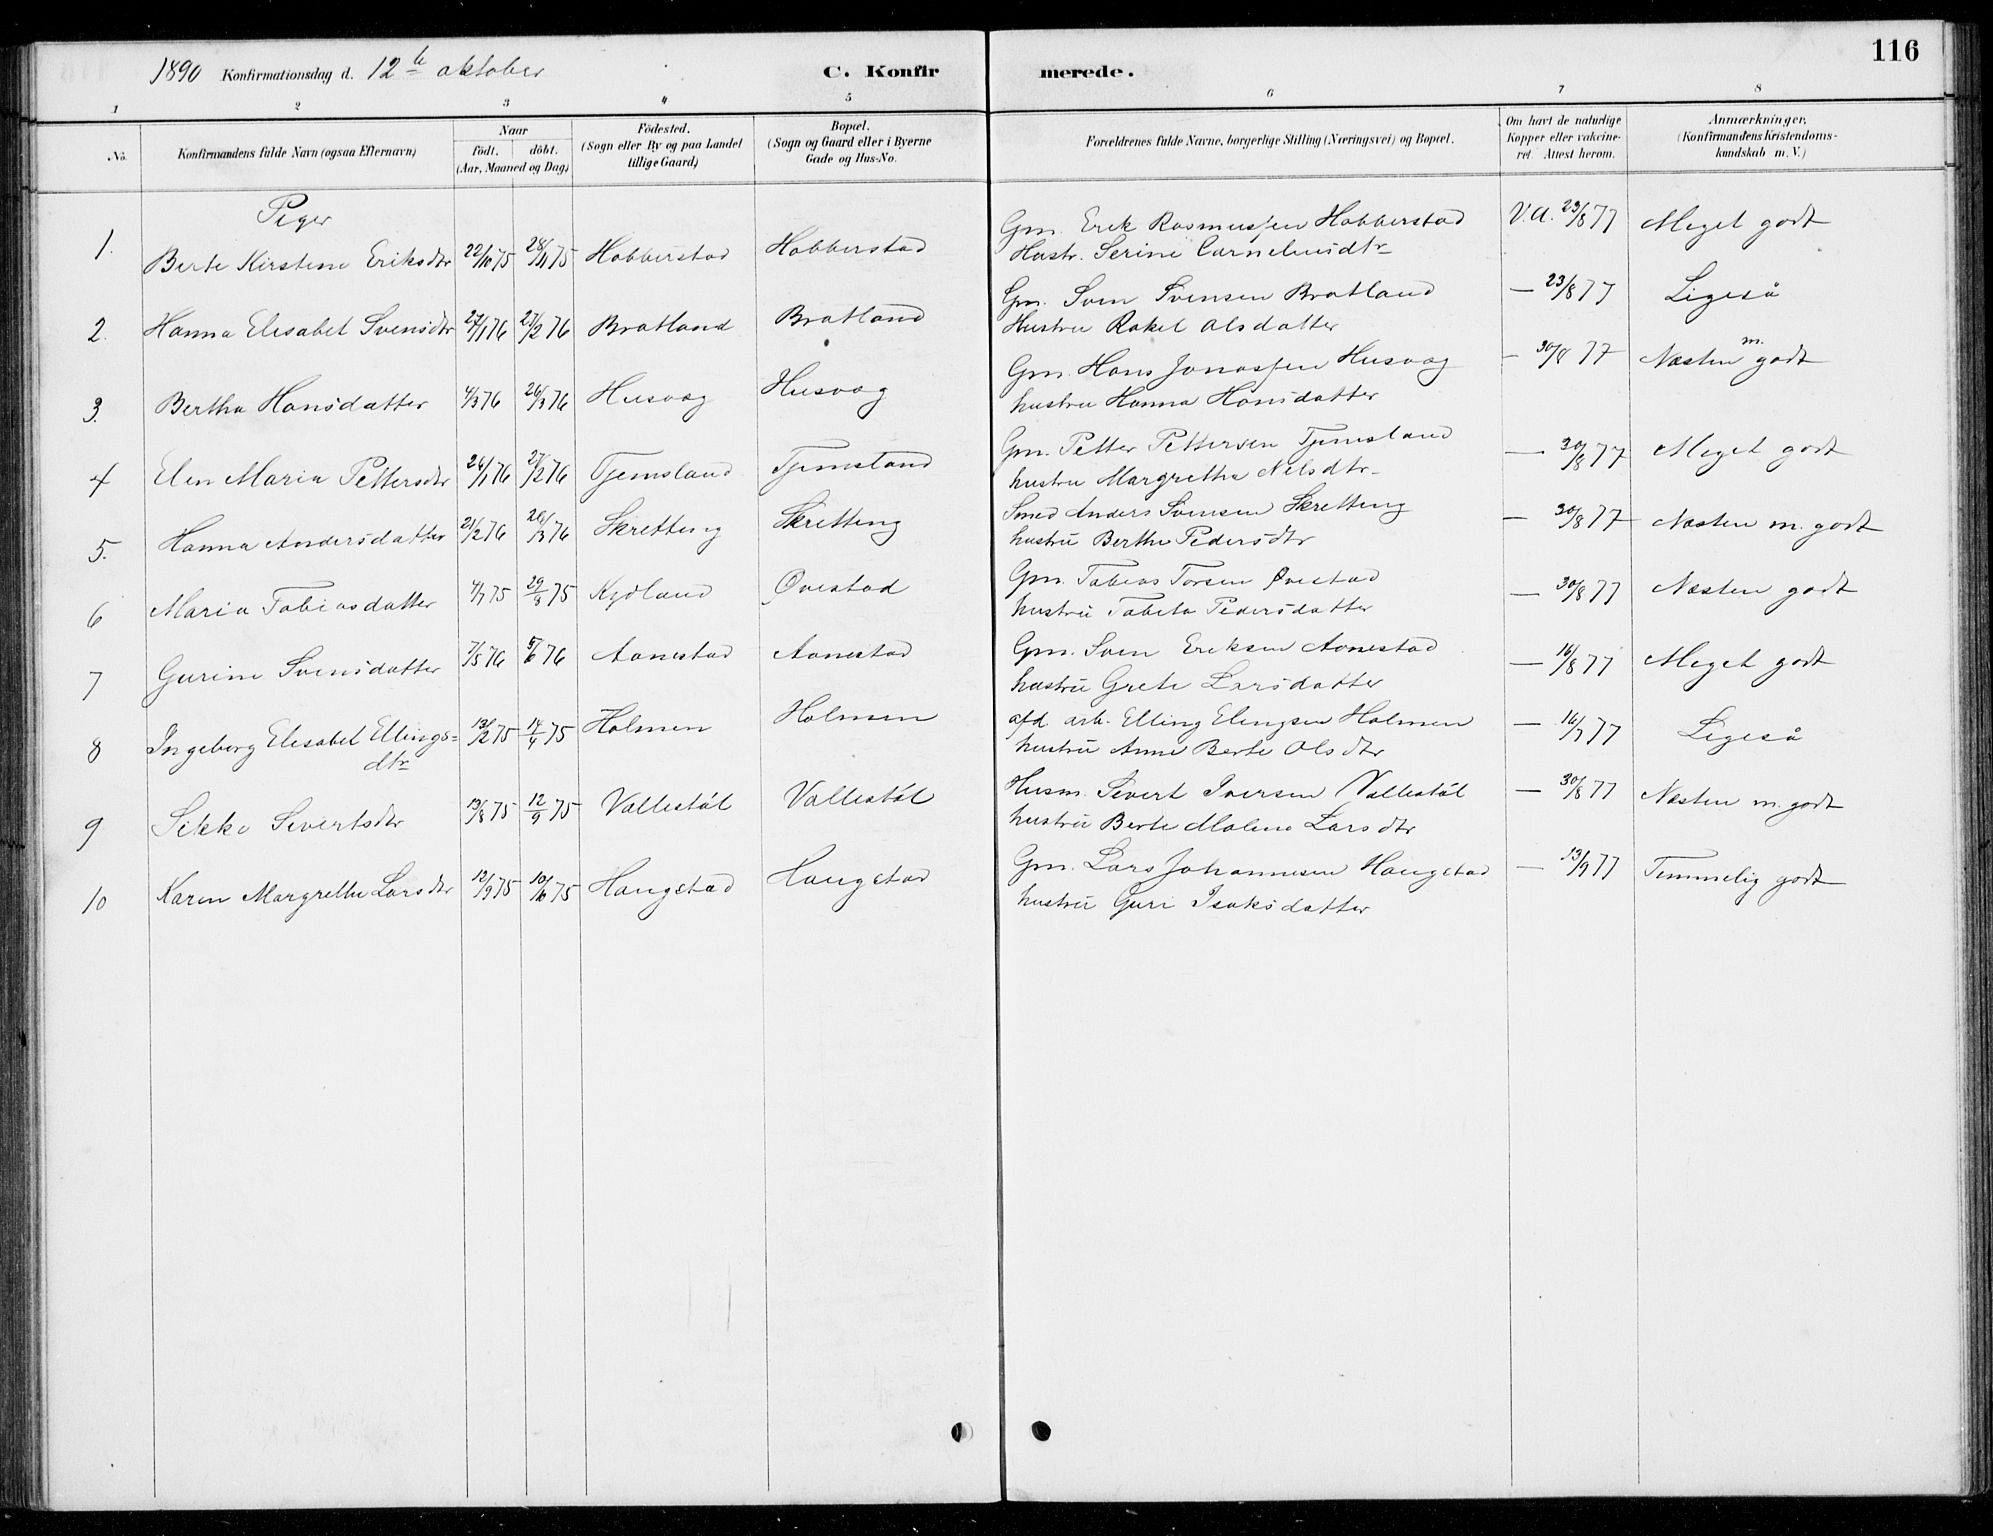 116
1890 Konfirmationsdag d. 12te oktober C. Konfirmerede.
1 2 3 4 5 6 7 8
No.
Konfirmandens fulde Navn (ogsaa Efternavn)
Naar
födt. döbt.
(Aar, Maaned og Dag)
Födested.
(Sogn eller By og paa Landet
tillige Gaard)
Bopæl.
(Sogn og Gaard eller i Byerne
Gade og Hus-No.
Forældrenes fulde Navne, borgerlige Stilling (Næringsvei) og Bopæl.
Om havt de naturlige
Kopper eller vakcine-
ret. Attest herom.
Anmærkninger.
(Konfirmandens Kristendoms-
kundskab m. V.)
Piger
1. Berte Kirstine Eriksdtr 22/10 75 28/11 75 Hobberstad Hobberstad Gm. Erik Rasmussen Hobberstad V.A. 23/8 77 Meget godt
Hustr. Serine Corneliusdtr
2. Hanna Elisabet Svensdtr 27/1 76 27/2 76 Bratland Bratland Gm. Sven Svensen Bratland — 23/8 77 Ligeså
Hustru Rakel Olsdatter
3. Bertha Hansdatter 4/3 76 26/3 76 Husvog Husvog Gm. Hans Jonassen Husvog — 30/8 77 Næsten m. godt
hustru Hanna Hansdatter
4 Elen Maria Pettersdtr 26/1 76 27/2 76 Tjemsland Tjemsland Gm. Petter Pettersen Tjemsland — 30/8 77 Meget godt
hustru Margretha Nelsdtr
5. Hanna Andersdatter 21/2 76 26/3 76 Skretting Skretting Smed Anders Svensen Skretting — 30/8 77 Næsten m. godt
hustru Berthe Pedersdtr
6 Maria Tobiasdatter 4/7 75 29/8 75 Kydland Ovestad Gm. Tobias Torsen Øvestad — 30/8 77 Næsten godt
hustru Tabita Pedersdatter
7 Gurine Svensdatter 7/5 76 5/6 76 Aanestad Aanestad Gm. Sven Eriksen Aanestad — 16/8 77 Meget godt
hustru Grete Larsdatter
8 Ingeborg Elisabet Ellings= 13/2 75 14/4 75 Holmen Holmen afd. arb. Elling Elingsen Holmen — 16/7 77 Ligeså
dtr hustru Anne Berte Olsdtr
9 Sikke Sivertsdtr 13/8 75 12/9 75 Vallestöl Vallestöl Husm. Sivert Iversen Vallestöl — 30/8 77 Næsten m. godt
hustru Berte Malene Larsdtr
10 Karen Margrethe Larsdtr 12/9 75 10/10 75 Haugstad Haugstad Gm. Lars Johannesen Haugstad — 13/9 77 Temmelig godt
hustru Guri Isaksdatter